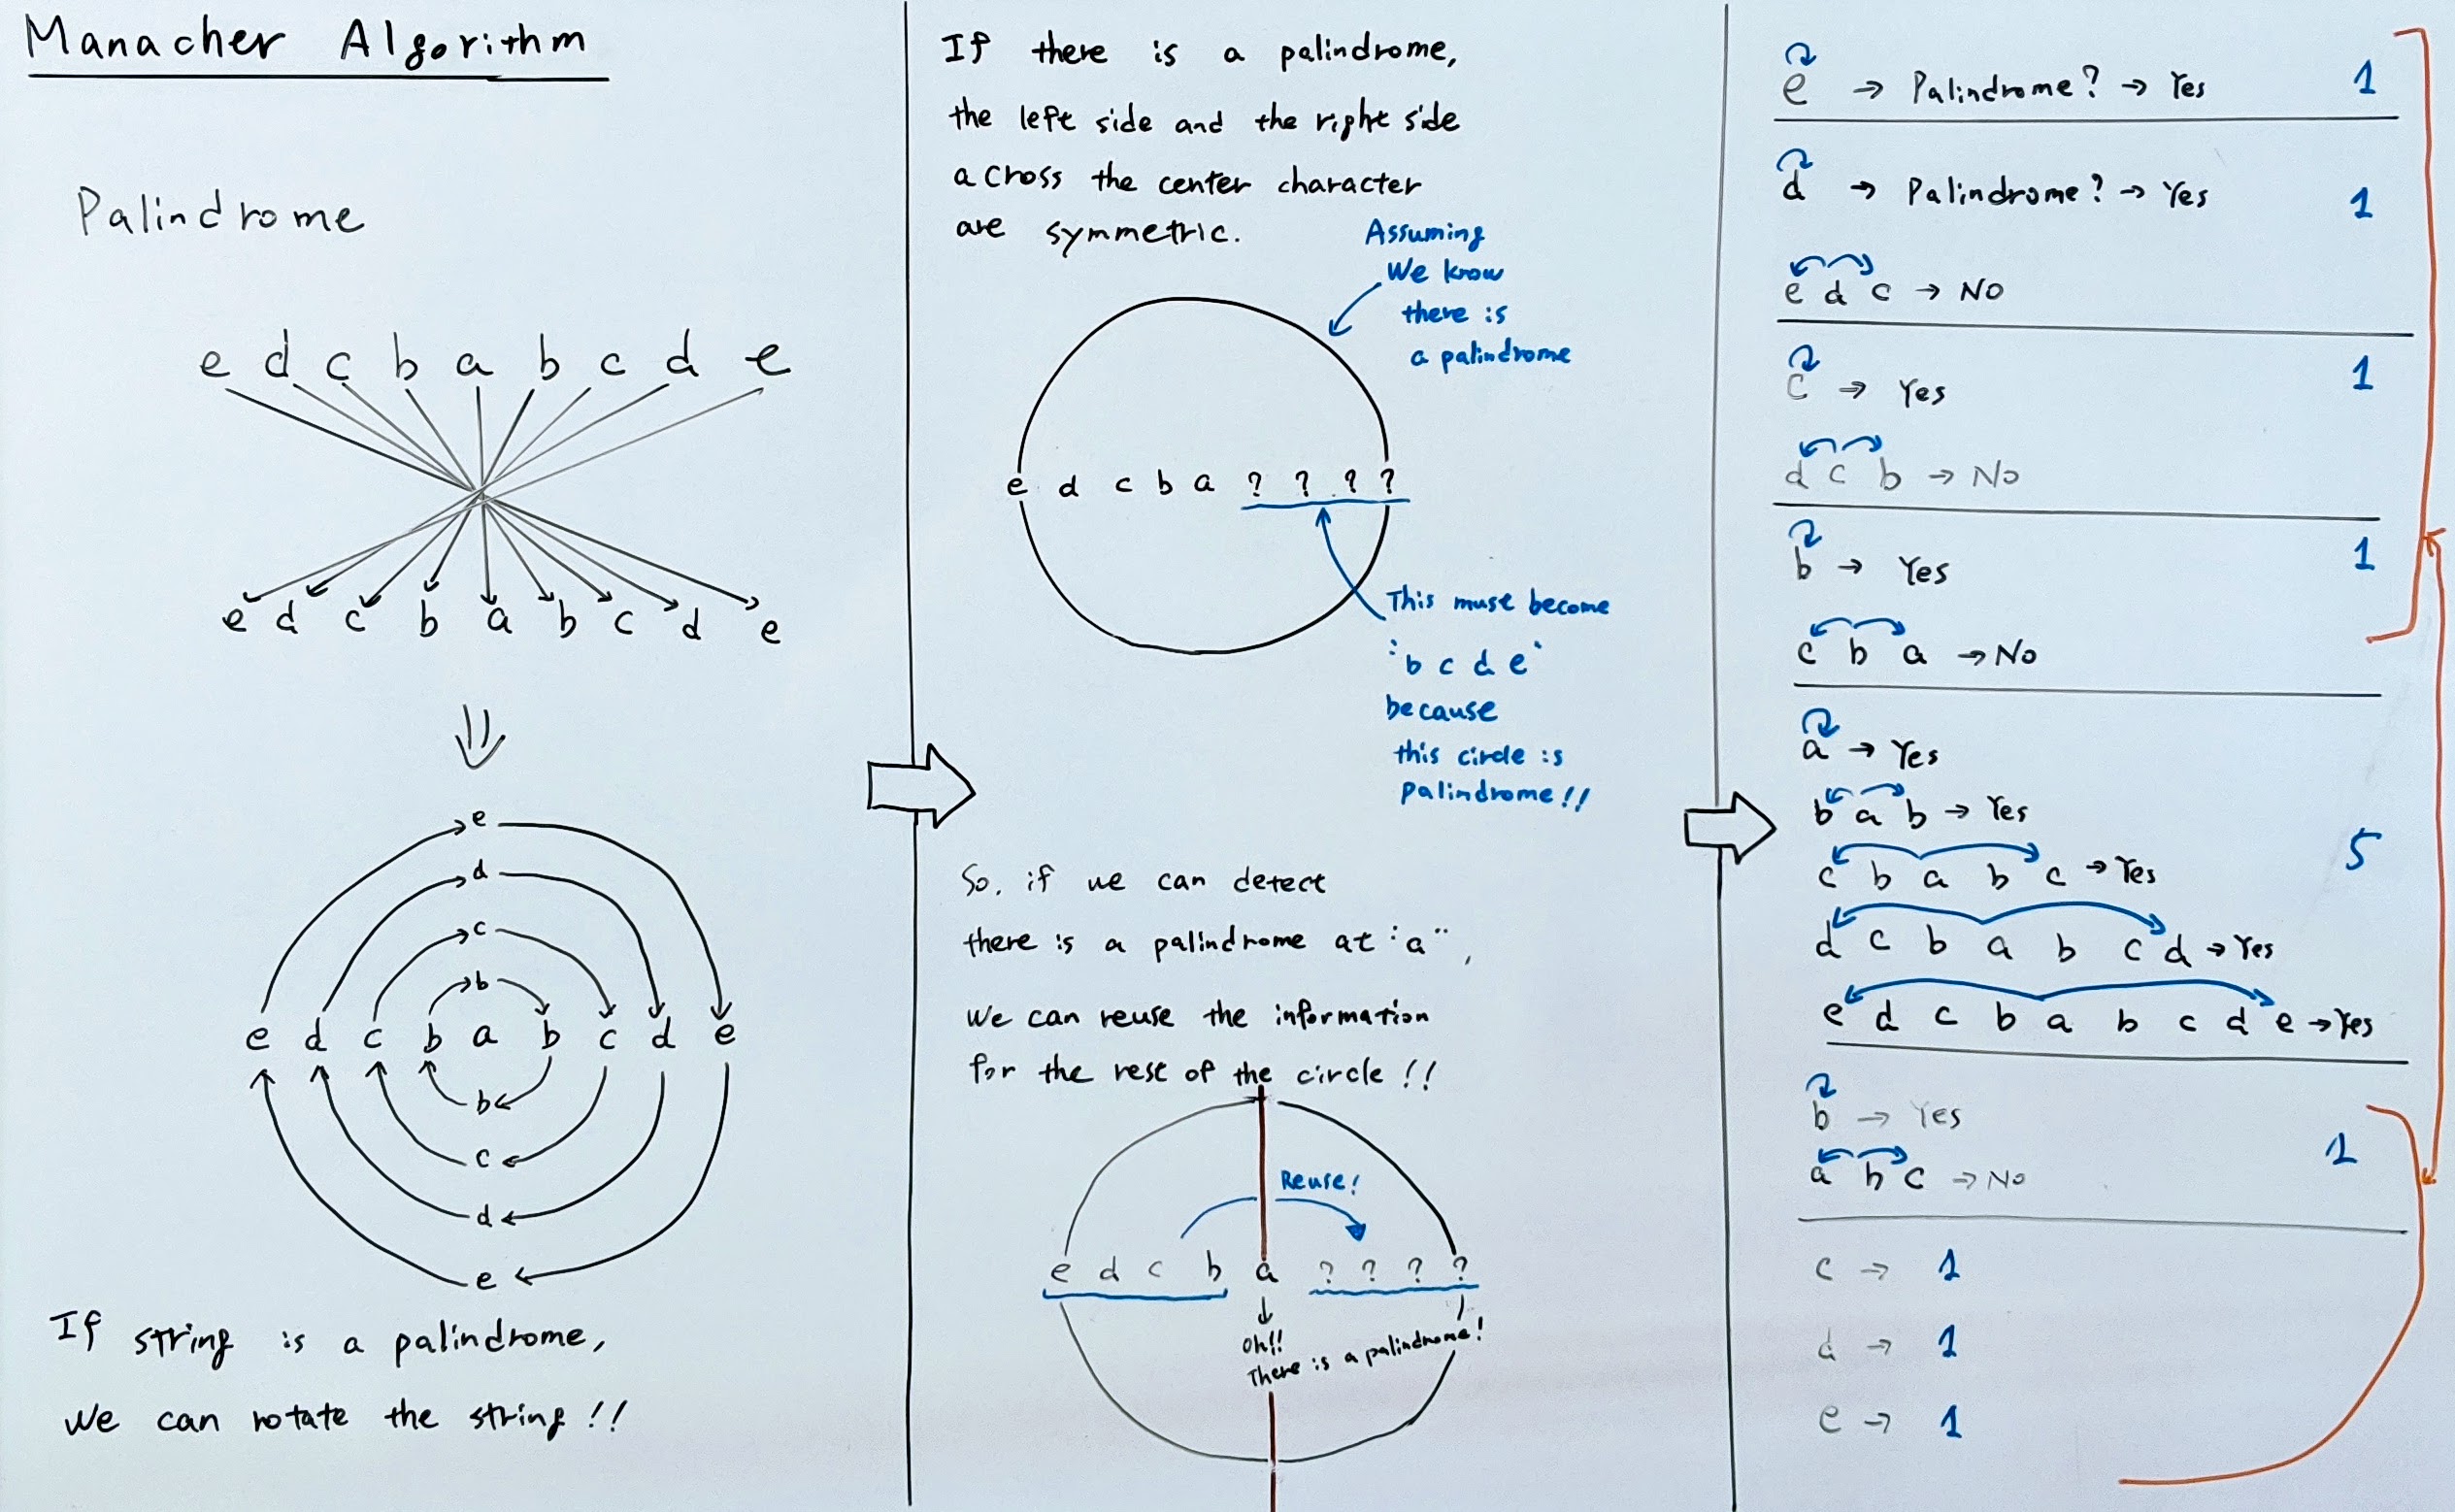 Manacher Algorithm
Palindrome
e d c b a b c d e
e d c b a b c d e
e
d
c
b
e d c b a b c d e
b
c
d
e
If string is a palindrome,
we can rotate the string!!
If there is a palindrome,
the left side and the right side
across the center character
are symmetric.
Assuming
we know
there is
a palindrome
e d c b a ? ? ? ?
This must become
"b c d e"
because
this circle is
palindrome!!
So, if we can detect
there is a palindrome at "a",
we can reuse the information
for the rest of the circle!!
Reuse!
e d c b a ? ? ? ?
↓
Oh!!
There is a palindrome!
e → Palindrome? → Yes 1
d → Palindrome? → Yes 1
e d c → No
c → Yes 1
d c b → No
b → Yes 1
c b a → No
a → Yes
b a b → Yes
c b a b c → Yes 5
d c b a b c d → Yes
e d c b a b c d e → Yes
b → Yes
a b c → No 1
c → 1
d → 1
e → 1